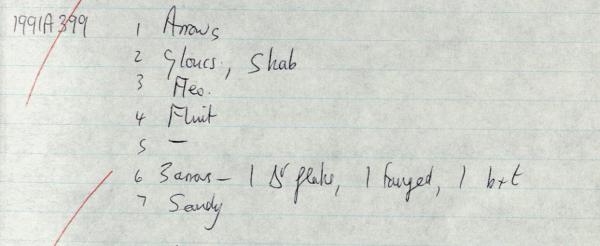 1991A399 1 Arrows
2 Gloucs., Shab
3 Neo.
4 Flint
5 —
6 3 arrows — 1 flake, 1 tanged, 1 b+t
7 Sandy